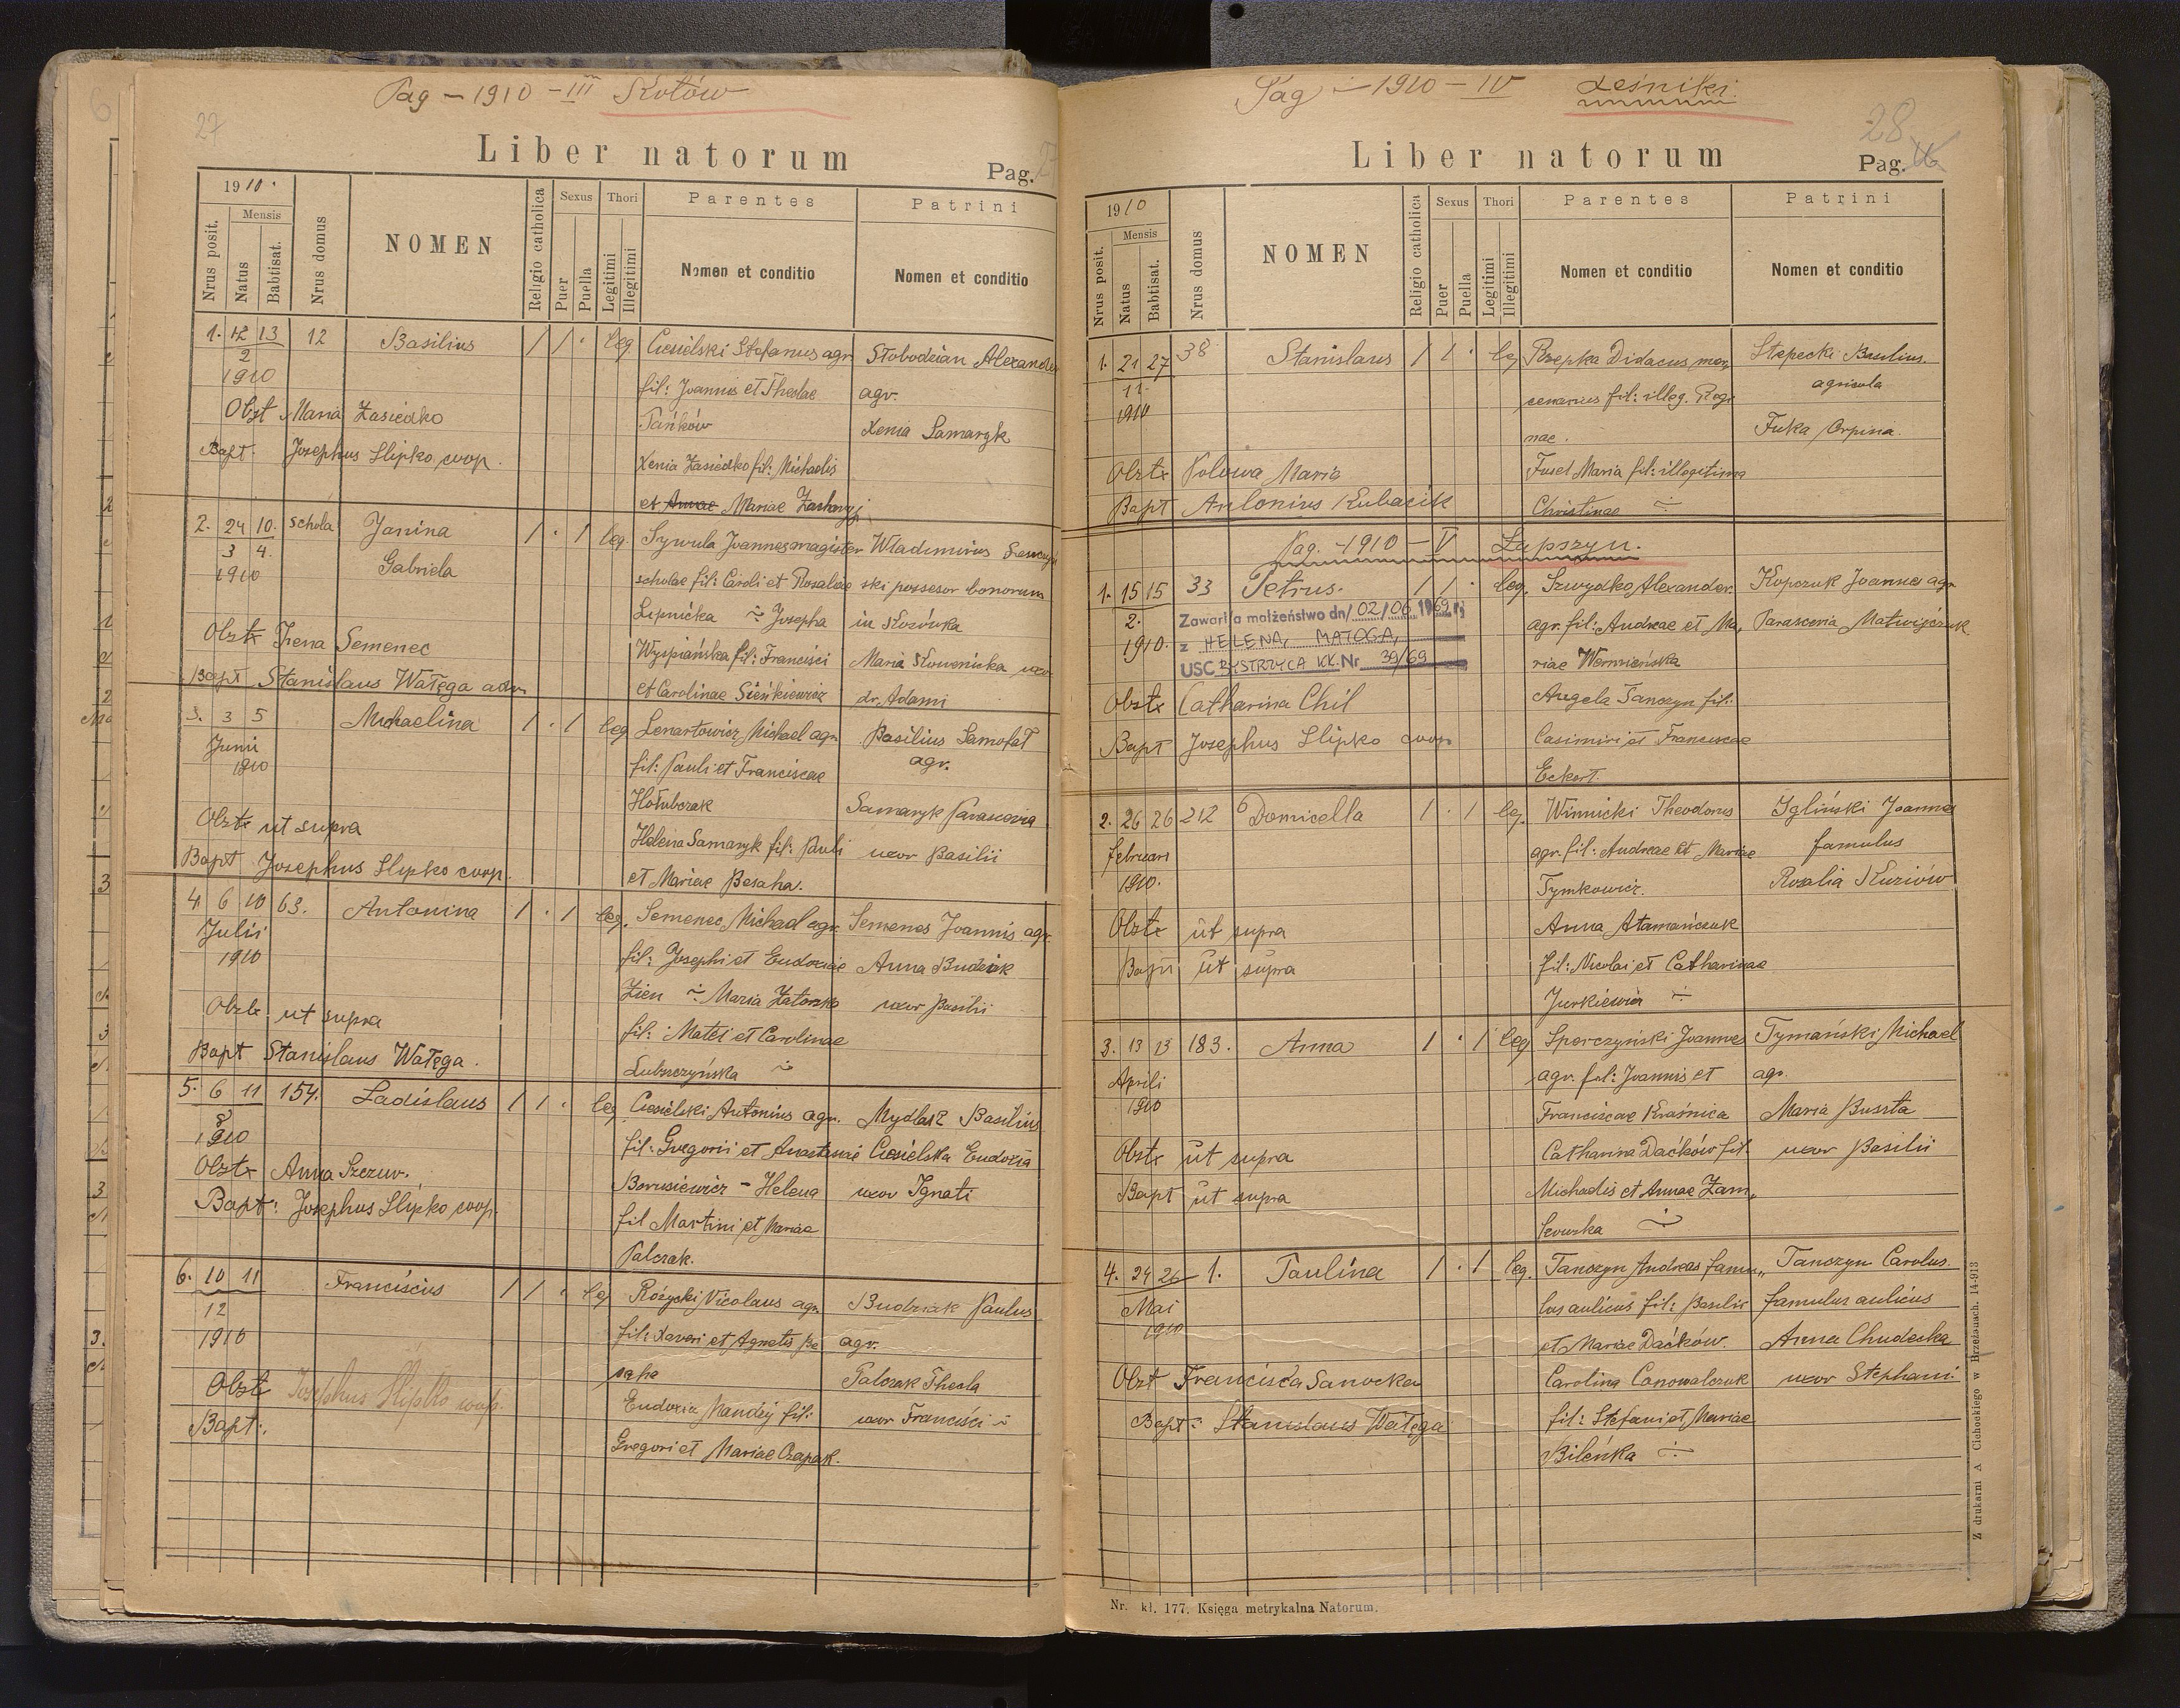 Pag – 1910 – III Kotów
27
Liber natorum
Pag. 27
1910.
Nrus posit.
Mensis
Natus
Babtisat.
Nrus domus
NOMEN
Religio catholica
Sexus
Puer
Puella
Thori
Legitimi
Illegitimi
Parentes
Nomen et conditio
Patrini
Nomen et conditio
1. 12 13 12 Basilius 1 1 · leg Ciesielski Stefanus agr. Słobodzian Alexander
2 fil: Joannis et Theclae agr.
1910 Pańków Xenia Samaryk
Obst Maria Zasiedko
Bapt. Josephus Slipko coop.
Xenia Zasiedko fil: Michaelis
et Annae Mariae
2. 24 10. schola Janina 1 · 1 leg. Sywula Joannes magister Wladimirus
3 4. Gabriela scholae fil: Caroli et Rosaliae ski possesor bonorum
1910 Lipnicka ~ Josepha in Kozówka
Obstx Irena Semenec Wyspiańska fil: Francisci Maria Słowenicka uxo
Bapt Stanislaus Wałęga adm. et Carolinae Sieńkiewicz dr. Adami
3. 3 5 Michaelina 1 · 1 leg Lenartowicz Michael agr. Basilius Samofał
Junii fil: Pauli et Franciscae agr.
1910 Hołubczak Samaryk Parascevia
Obstx ut supra Helena Samaryk fil: Pauli uxor Basilii
Bapt Josephus Slipko coop. et Mariae Besaha.
4 6 10 63. Antonina 1 · 1 leg. Semenec Michael agr. Semenes Joannis agr.
Julii fil: Josephi et Eudoxiae Anna Budziak
1910 Zien ~ Maria Zatorska uxor Basilii
Obstx ut supra fil: Matei et Carolinae
Bapt Stanislaus Wałęga. Lubszczyńska ~
5. 6 11 154. Ladislaus 1 1 · leg Ciesielski Antonius agr. Mydlarz Basilius
8 fil: Gregorii et Anastasiae Ciesielska Eudoxia
1910 Borusiewicz – Helena uxor Ignati
Obstx Anna Szczur. fil Martini et Mariae
Bapt: Josephus Slipko coop. Palczak.
6. 10 11 Franciscus 1 1 · leg Różycki Nicolaus agr. Budziak Paulus
12 fil: Xaveri et Agnetis Be agr.
1910 saha Palczak Thecla
Obstx Josephus Slipko coop. Eudoxia Mandzij fil: uxor Francisci ~
Bapt: Gregori et Mariae Czapak.
Pag – 1910 – IV Leśniki
28
Liber natorum
Pag.
1910
Nrus posit.
Mensis
Natus
Babtisat.
Nrus domus
NOMEN
Religio catholica
Sexus
Puer
Puella
Thori
Legitimi
Illegitimi
Parentes
Nomen et conditio
Patrini
Nomen et conditio
1. 21 27 38 Stanislaus 1 1 · leg Rzepka Didacus mer, Stepecki Basilius
11. cenarius fil: illeg. Regi agricola
1910 nae. Fuka Orpina.
Obstx Polowa Maria Fusel Maria fil: illegitima
Bapt Antonius Kubacik Christinae ÷
Pag. – 1910 – V Łapszyn.
1. 15 15 33 Petrus. 1 1 · leg. Szwydko Alexander. Kopczuk Joannes agr.
2. agr. fil: Andreae et Ma, Parascevia Matwijczuk
1910. riae Wermieńska
Zawarł/a małżeństwo dn/ 02/06 1969 r.
z HELENA, MATOGA,
USC BYSTRZYCA KŁ. Nr 39/69
Obstx Catharina Chil Angela Tanczyn fil:
Bapt Josephus Slipko coop Casimiri et Franciscae
Eckert.
2. 26 26 212 Domicella 1 · 1 leg. Winnicki Theodorus Igliński Joannes
Februari agr. fil: Andreae et Mariae famulus
1910. Tymkowicz. Rosalia Kuriów
Obstx ut supra Anna Atamańczuk
Bapt ut supra fil: Nicolai et Catharinae
Jurkiewicz ÷
3. 13 13 183. Anna 1 · 1 leg Sperczyński Joannes Tymański Michael
Aprili agr. fil: Joannis et agr.
1910 Franciscae Kraśnica Maria Buszta
Obstx ut supra Catharina Daćków fil. uxor Basilii
Bapt ut supra Michaelis et Annae Zam,
kowska ÷
4. 24 26 1. Paulina 1 · 1 leg. Tanczyn Andreas famu,, Tanczyn Carolus
Mai lus aulicus fil: Basilii famulus aulicus
1910 et Mariae Daćków. Anna Chudecka
Obst Francisca Sanocka Carolina Canowalczuk uxor Stephani.
Bapt: Stanislaus Wałęga fil: Stefani et Mariae
Bileńka ÷
Nr. kł. 177. Księga metrykalna Natorum.
Z drukarni A Cichockiego w Brzeżanach. 14-913